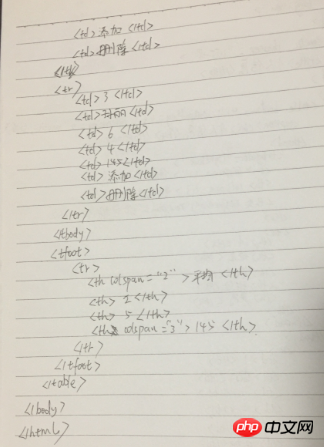 <td>添加</td>
<td>删除</td>
</tr>
<tr>
<td>3</td>
<td></td>
<td>6</td>
<td>4</td>
<td>145</td>
<td>添加</td>
<td>删除</td>
</tr>
</tbody>
<tfoot>
<tr>
<th colspan="2">平均</th>
<th>2</th>
<th>5</th>
<th colspan="3">145</th>
</tr>
</tfoot>
</table>
</body>
</html>
php中文网